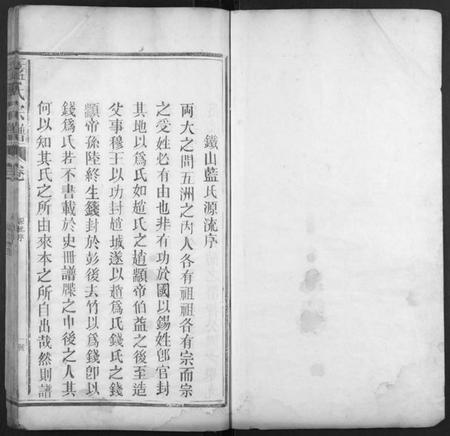 鐵山藍氏源流序
兩大之間五洲之內人各有祖祖各有宗而宗
之受姓必有由也非有功於國以錫姓卽官封
其地以爲氏如趙氏之趙顓帝伯益之後至造
父事穆王以功封趙城遂以趙爲氏錢氏之錢
顓帝孫陸終生籛封於彭後去竹以爲錢卽以
錢爲氏若不書載於史冊譜牒之中後之人其
何以知其氏之所由來本之所自出哉然則譜
藍氏宗譜
卷
源流序